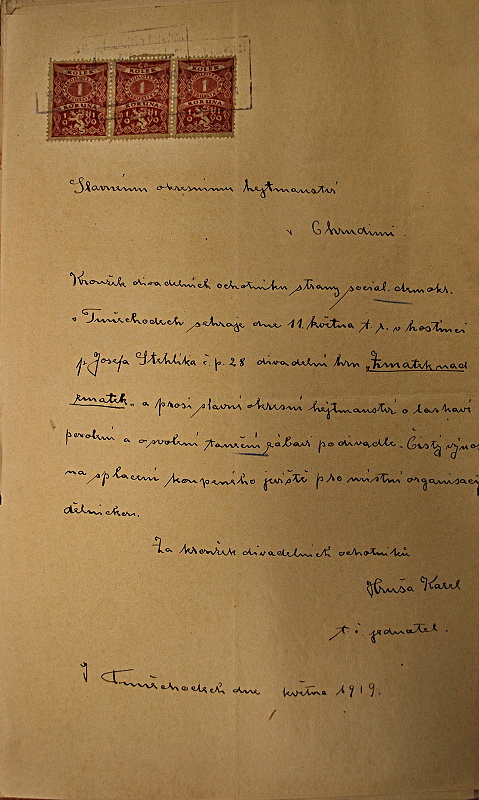 ČR ČR ČR
KOLEK KOLEK KOLEK
1 1 1
KORUNA KORUNA KORUNA
1919 1919 1919
Slavnému okresnímu hejtmanství
v Chrudimi.
Kroužek divadelních ochotníku strany social. demokr.
v Tuněchodech sehraje dne 11. května t. r. v hostinci
p Josefa Stehlíka č. p. 28 divadelní hru „Zmatek nad
zmatek“ a prosí slavní okresní hejtmanství o laskaví
povolení a osvolení taneční zábavi po divadle. Čistý výnos
na splacení koupeného jeviště pro místní organisaci
dělnickou.
Za kroužek divadelních ochotníků
Hruša Karel
t. č jednatel.
V Tuněchodech dne května 1919.